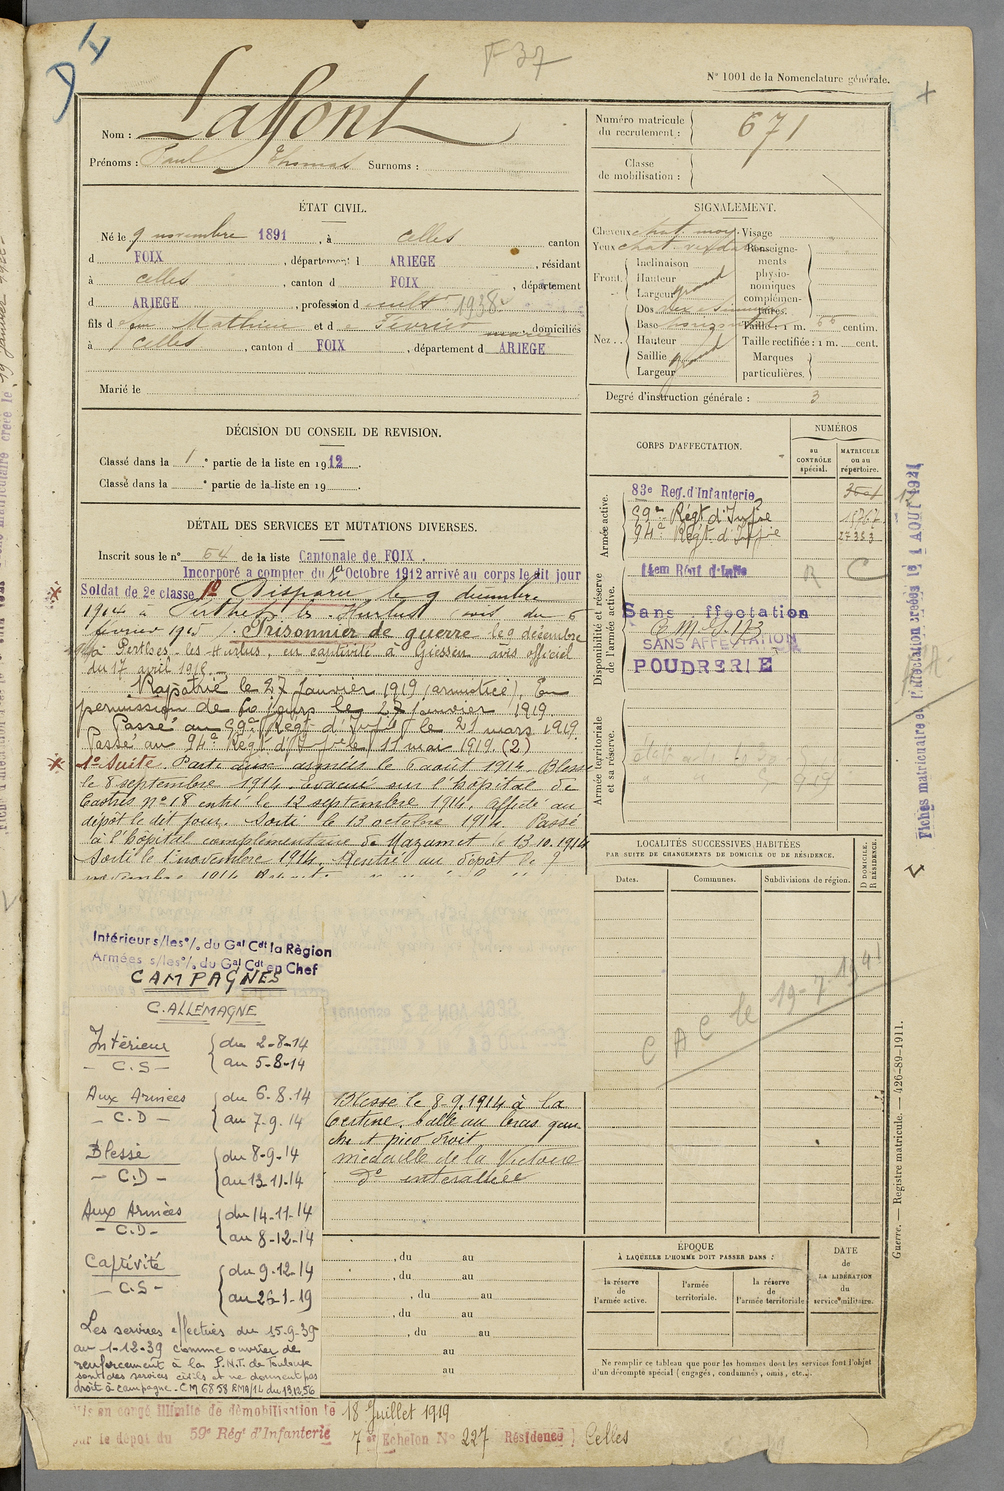 F37
N° 1001 de la Nomenclature générale.
Nom : Laffont
Prénoms : Paul Thomas Surnoms :
Numéro matricule du recrutement : 671
Classe de mobilisation :
ÉTAT CIVIL.
Né le 9 novembre 1891, à Celles canton
d FOIX, département d ARIEGE, résidant
à Celles, canton d FOIX, département
d ARIEGE, profession d cult 1938
fils d feu Mathieu et d domiciliés
à Celles, canton d FOIX, département d ARIEGE
Marié le
SIGNALEMENT.
Cheveux chat moy. Visage
Yeux chat Renseigne-
Front. Inclinaison ments
Hauteur physio-
Largeur grand nomiques
Nez Dos complémen-
Base taires.
Taille : 1 m. 66 centim.
Hauteur Taille rectifiée : 1 m. cent.
Saillie grand Marques
Largeur particulières.
Degré d'instruction générale : 3
DÉCISION DU CONSEIL DE REVISION.
Classé dans la 1re partie de la liste en 1912.
Classé dans la partie de la liste en 19
DÉTAIL DES SERVICES ET MUTATIONS DIVERSES.
Inscrit sous le n° 54 de la liste Cantonale de FOIX.
Incorporé a compter du 10 Octobre 1912 arrivé au corps le dit jour
Soldat de 2e classe Disparu le 9 décembre
1914 à Perthes les Hurlus avis du 6
février 1915. Prisonnier de guerre le 9 décembre
à Perthes-les-Hurlus, en captivité à Giessen avis officiel
du 17 avril 1916.
Rapatrié le 27 Janvier 1919 (armistice), En
permission de 60 jours le 27 janvier 1919.
Passé au 59e Régt d'Inf le 21 mars 1919
Passé au 94e Régt d'Inf le 11 mai 1919. (2)
1o Suite. Parti aux armées le 6 août 1914. Blessé
le 8 septembre 1914. Evacué sur l'hôpital de
Castres n° 18 entré le 12 septembre 1914, affecté au
dépôt le dit jour. Sorti le 13 octobre 1914. Passé
à l'hôpital complémentaire de Mazamet le 13.10.1914
Sorti le 1 novembre 1914. Rentré au dépôt le 7
novembre 1914
CORPS D'AFFECTATION.
NUMÉROS
au CONTRÔLE spécial.
MATRICULE ou au répertoire.
Armée active.
83e Reg. d'Infanterie
59e Régt d'Infie
94e Régt d'Infie 27353
Disponibilité et réserve de l'armée active.
14em Rég d'Infie R C
Sans ffectation
SANS AFFECTATION
POUDRERIE
Armée territoriale et sa réserve.
Fiches matriculaire et d'affectation créées le 1 AOUT 1921
LOCALITÉS SUCCESSIVES HABITÉES
PAR SUITE DE CHANGEMENTS DE DOMICILE OU DE RÉSIDENCE.
Dates. Communes. Subdivisions de région. D DOMICILE. R RÉSIDENCE.
CAC le 19-7-1941
Intérieur s/les°/. du Gal Cdt la Règion
Armées s/les°/. du Gal Cdt en Chef
CAMPAGNES
C. ALLEMAGNE
Intérieur du 2-8-14
- C.S - au 5-8-14
Aux Armées du 6.8.14
- C.D - au 7-9.14
Blessé du 8-9-14
- C.D - au 13-11-14
Aux Armées du 14-11-14
- C.D - au 8-12-14
Captivité du 9-12-14
- C.S - au 26-1-19
Les services effectués du 15-9-39
au 1-12-39 comme ouvrier de
renforcement à la P.N.T. de Toulouse
sont des services civils et ne donnent pas
droit à campagne. CM 6858 RMA/14 du 13.12.56
Blessé le 8-9.1914 à la
balle au bras gau
che et pied droit
médaille de la Victoire
d° interalliée
, du au
, du au
, du au
, du au
, du au
au
au
ÉPOQUE
À LAQUELLE L'HOMME DOIT PASSER DANS :
la réserve de l'armée active.
l'armée territoriale.
la réserve de l'armée territoriale
DATE de LA LIBÉRATION du service militaire.
Ne remplir ce tableau que pour les hommes dont les services font l'objet
d'un décompte spécial (engagés, condamnés, omis, etc...).
Guerre. — Registre matricule. — 426-89-1911.
is en congé illimité de démobilisation le 18 Juillet 1919
par le dépôt du 59e Rég d'Infanterie 7 er Echelon N° 227 Résidence Celles